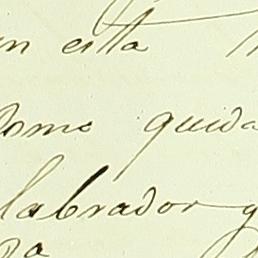 en esta
como quida
labrador y